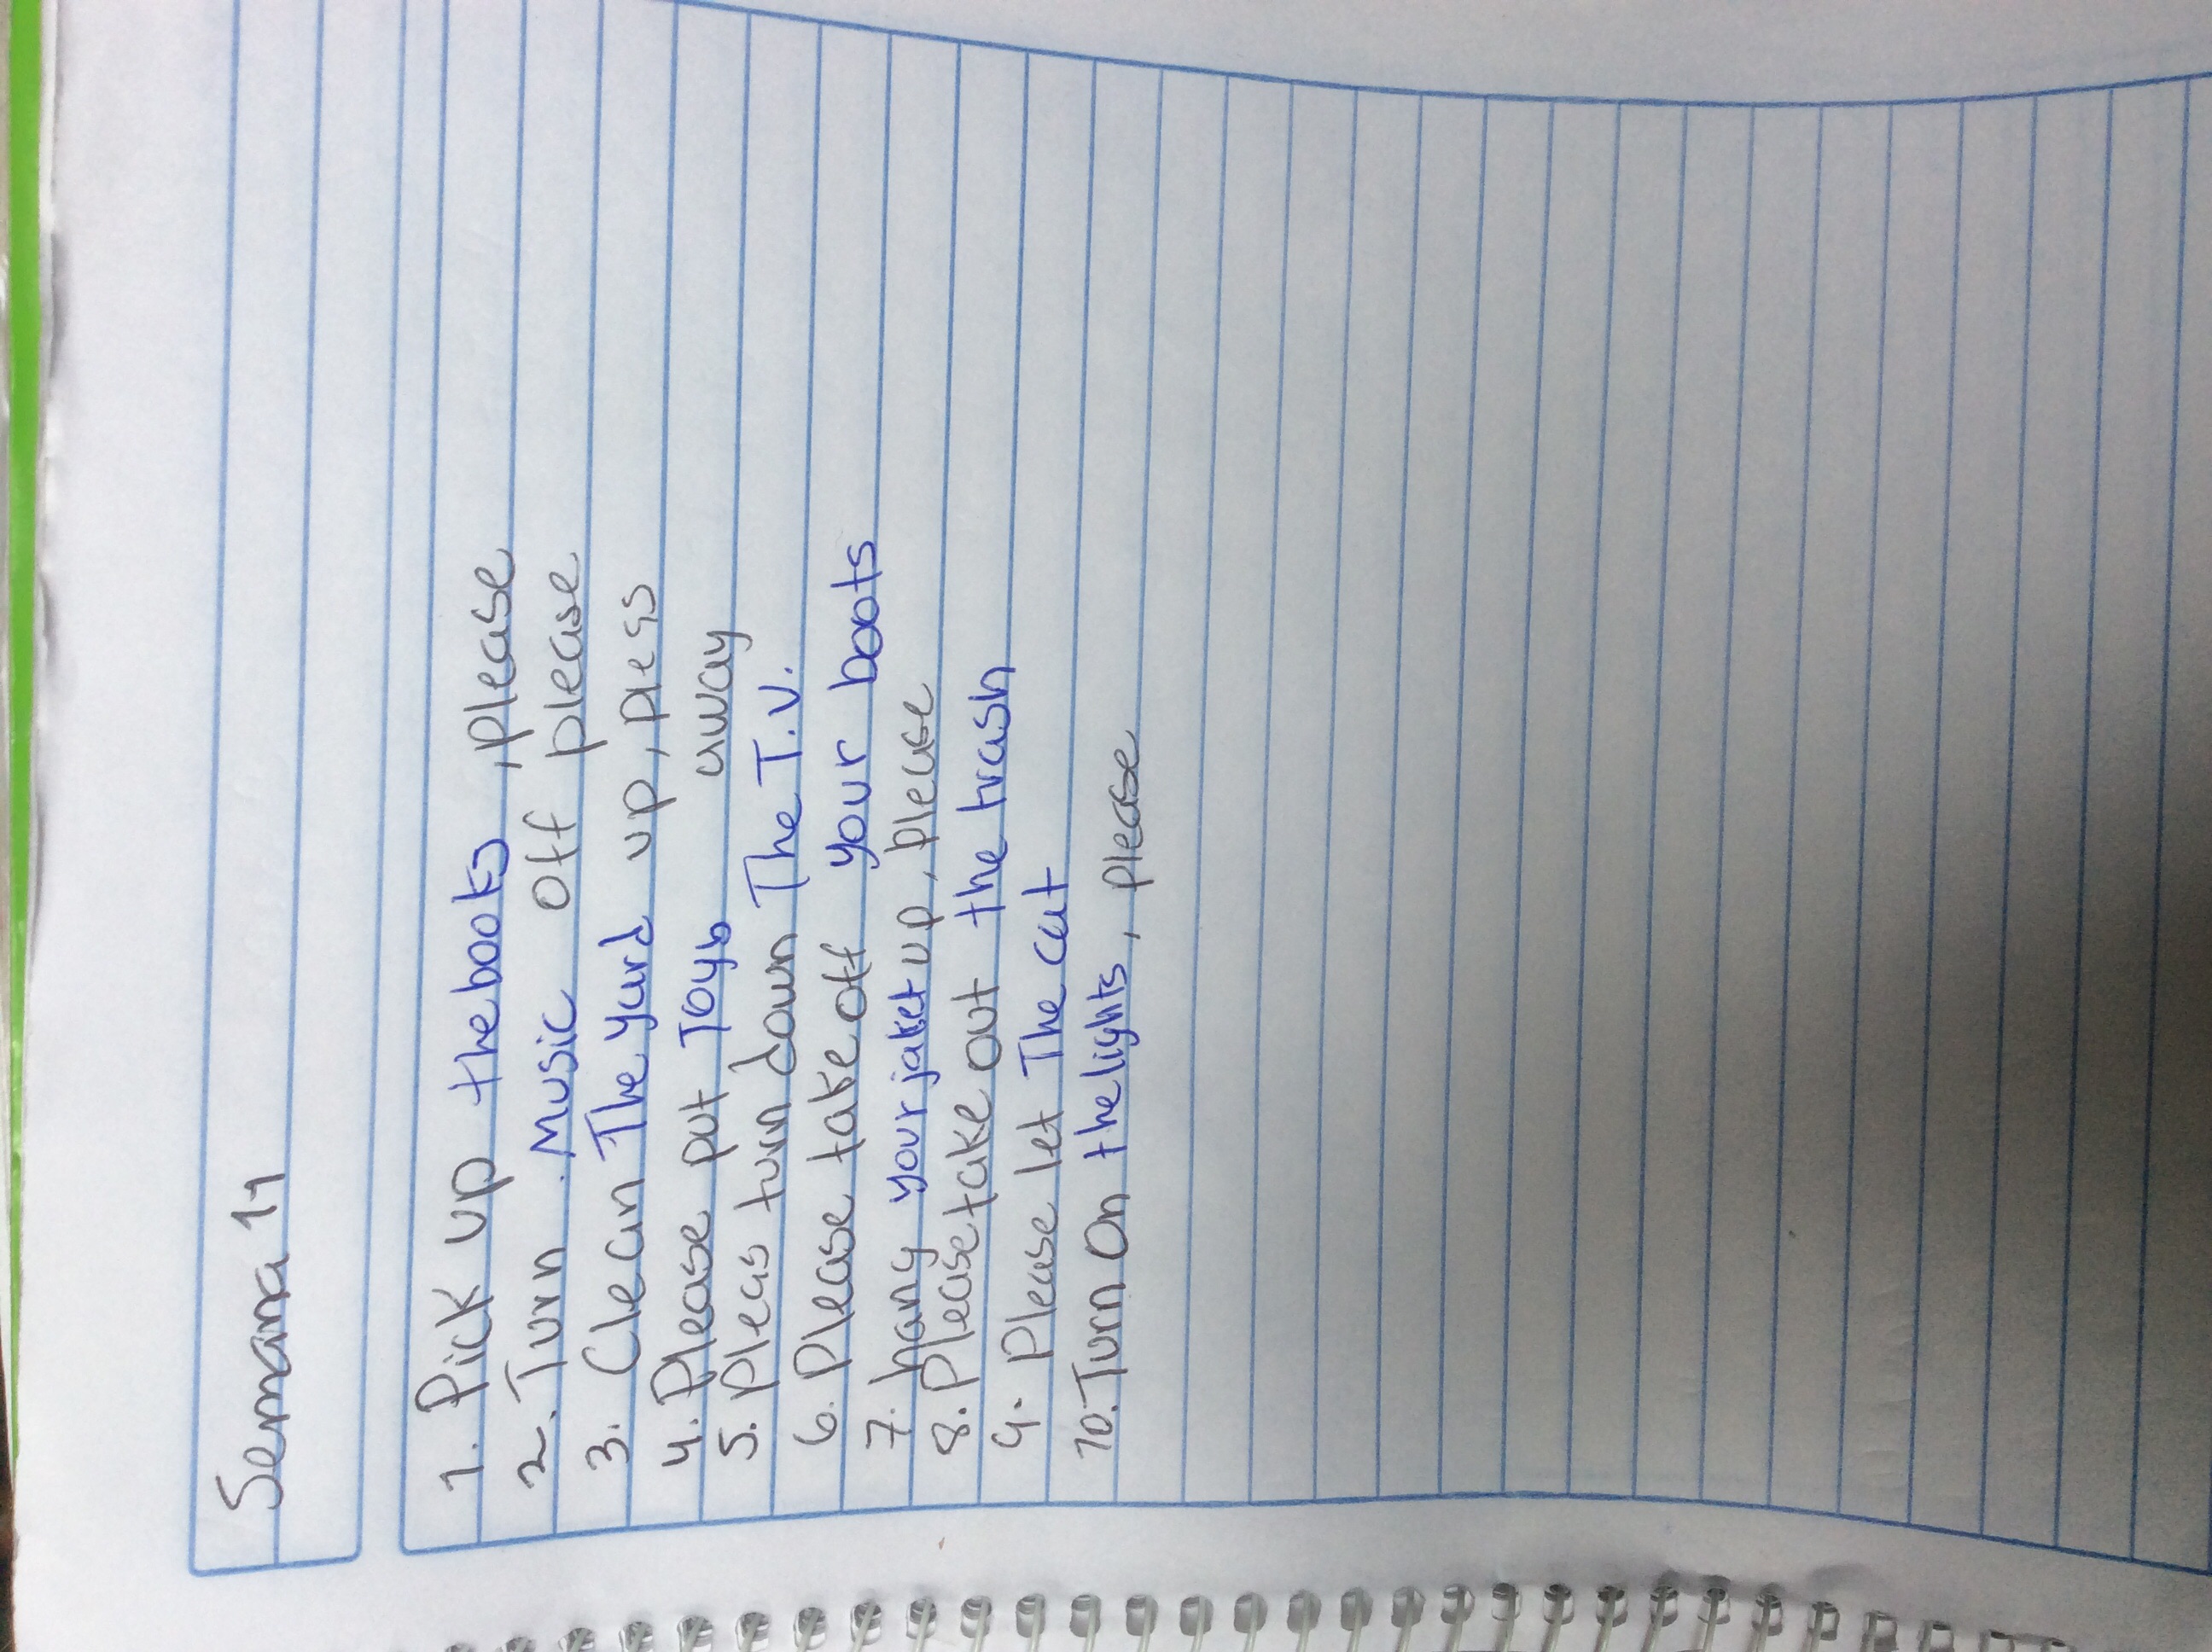 Semana 11
1. Pick up the books, please
2. Turn Music off please
3. Clean The yard up, pleas
4. Please put Toys away
5. Pleas turn down The T.V.
6. Please take off your boots
7. hang your jaket up, please
8. Please take out the trash
9. Please let The cat
10. Turn On the lights, please